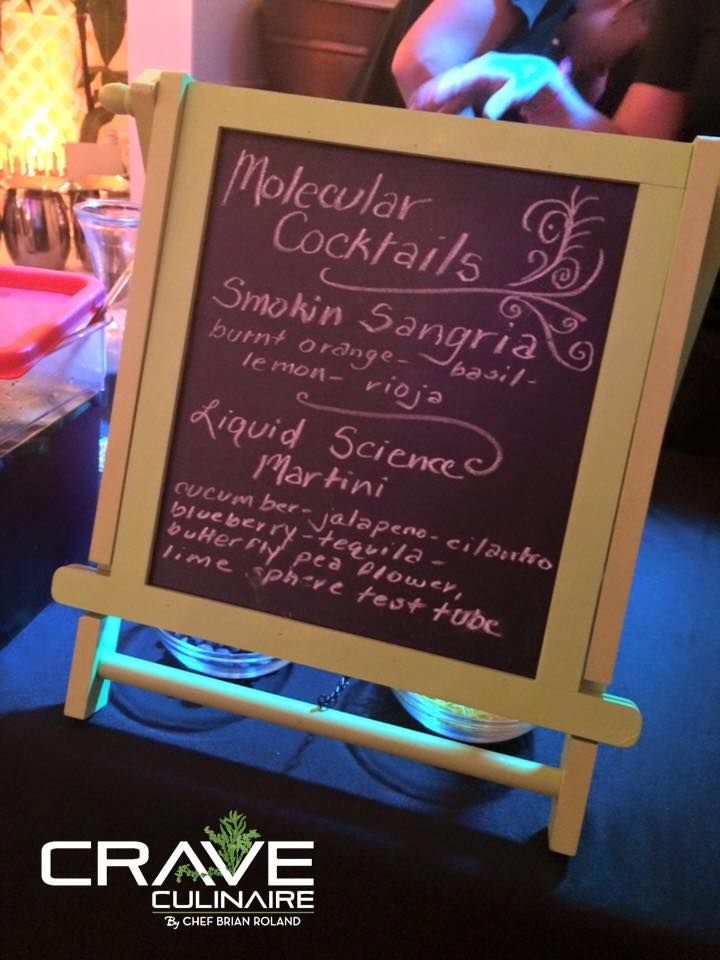 Molecular
Cocktails
Smokin Sangria
burnt orange- basil-
lemon- rioja
Liquid Science
Martini
cucumber- jalapeno- cilantro
blueberry -tequila-
butterfly pea flower,
lime sphere test tube
CRAVE
CULINAIRE
By CHEF BRIAN ROLAND